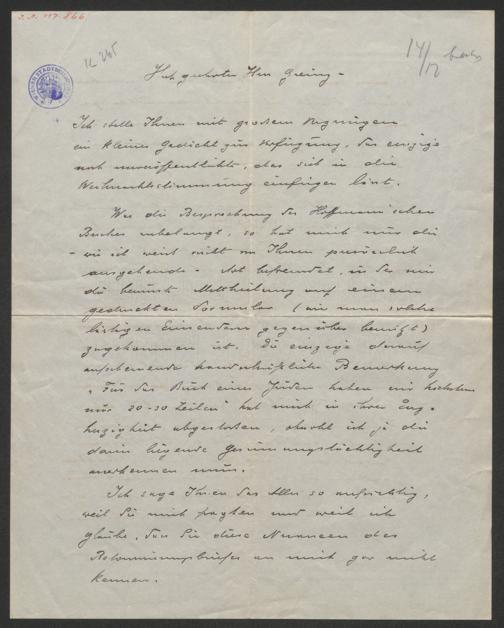 I. N. 117.866
14/12
Sehr geehrter Herr Greinz –
Ich stelle Ihnen mit grossem Vergnügen
ein kleines Gedicht zur Verfügung, das einzige
noch unveröffentlichte, das sich in die
Weihnachtsstimmung einfügen lässt.
Was die Besprechung des Hoffmann'schen
Buches anbelangt, so hat mich nur die
– wie ich weiss nicht von Ihnen persönlich
ausgehende – Art befremdet, in der mir
die Mittheilung auf einem
gedruckten Formular (wie man solche
lästigen Einsendern gegenüber benützt)
zugekommen ist. Die einzige darauf
aufscheinende handschriftliche Bemerkung
„Für das Buch eines Juden haben wir höchstens
nur 20-30 Zeilen" hat mich in ihrer Eng-
herzigkeit abgestossen, obwohl ich ja die
darin liegende Gesinnungstüchtigkeit
anerkennen muss.
Ich sage Ihnen das Alles so aufrichtig,
weil Sie mich fragten und weil ich
glaube, dass Sie diese Nuancen des
an mich gar nicht
kennen.